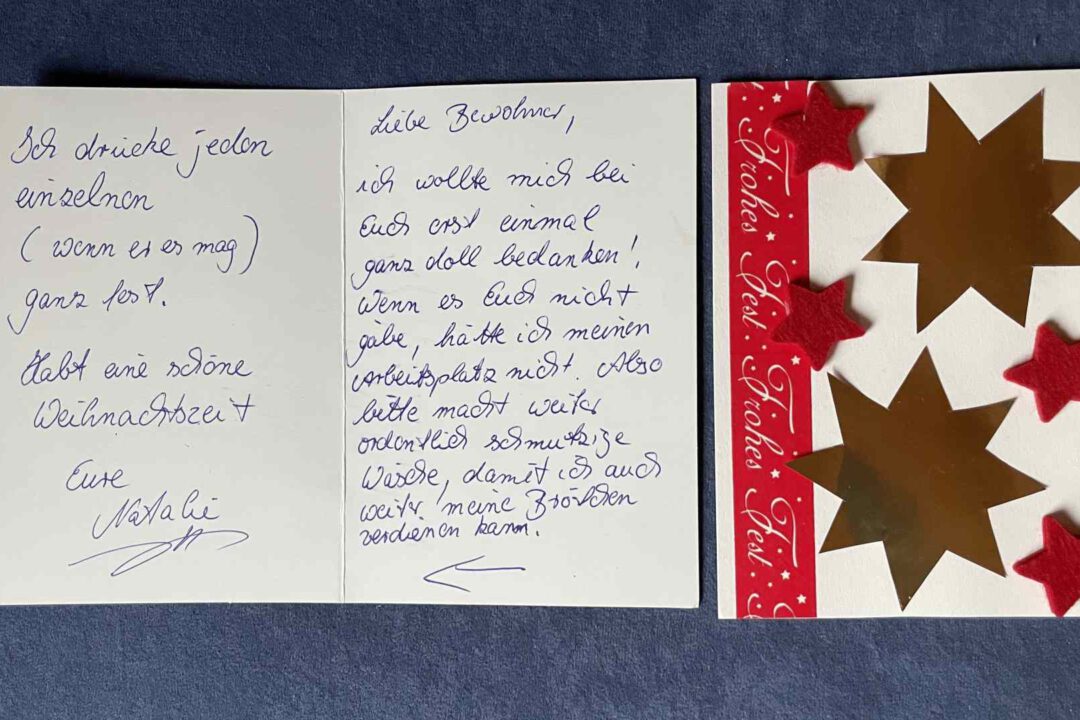 Liebe Bewohner,
ich wollte mich bei
Euch erst einmal
ganz doll bedanken!
Wenn es Euch nicht
gäbe, hätte ich meinen
Arbeitsplatz nicht. Also
bitte macht weiter
ordentlich schmutzige
Wäsche, damit ich auch
weiter meine Brötchen
verdienen kann.
Ich drücke jeden
einzelnen
(wenn er es mag)
ganz fest.
Habt eine schöne
Weihnachtszeit
Eure
Natalie
Frohes Fest Frohes Fest